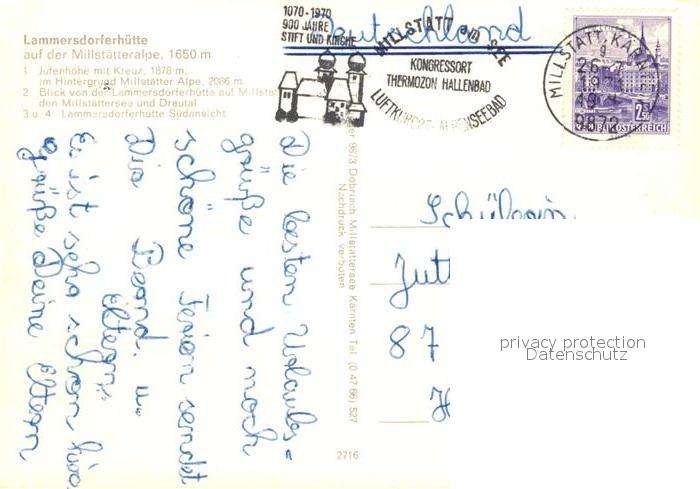 Lammersdorferhütte
auf der Millstätteralpe, 1650 m
1 Jufenhöhe mit Kreuz, 1878 m,
im Hintergrund Millstätter Alpe, 2086 m.
2 Blick von der Lammersdorferhütte auf Millst
den Millstättersee und Drautal
3 u. 4 Lammersdorferhütte Südansicht
1070-1970
900 JAHRE
STIFT UND KIRCHE
MILLSTATT am SEE
KONGRESSORT
THERMOZON HALLENBAD
LUFTKURORT ALPENSEEBAD
Deutschland
MILLSTATT, KÄRNT
26.7.
9872
2.50
REPUBLIK ÖSTERREICH
9873 Döbriach Millstättersee Kärnten Tel. (0 47 66) 527
Nachdruck verboten
2716
Die besten Urlaubs-
grüße und noch
schöne Ferien sendet
Dir Beand. u.
Eltern.
Es ist sehr schön hier
Grüße Deine Eltern
Schülerin
Jutt
87
H
privacy protection
Datenschutz